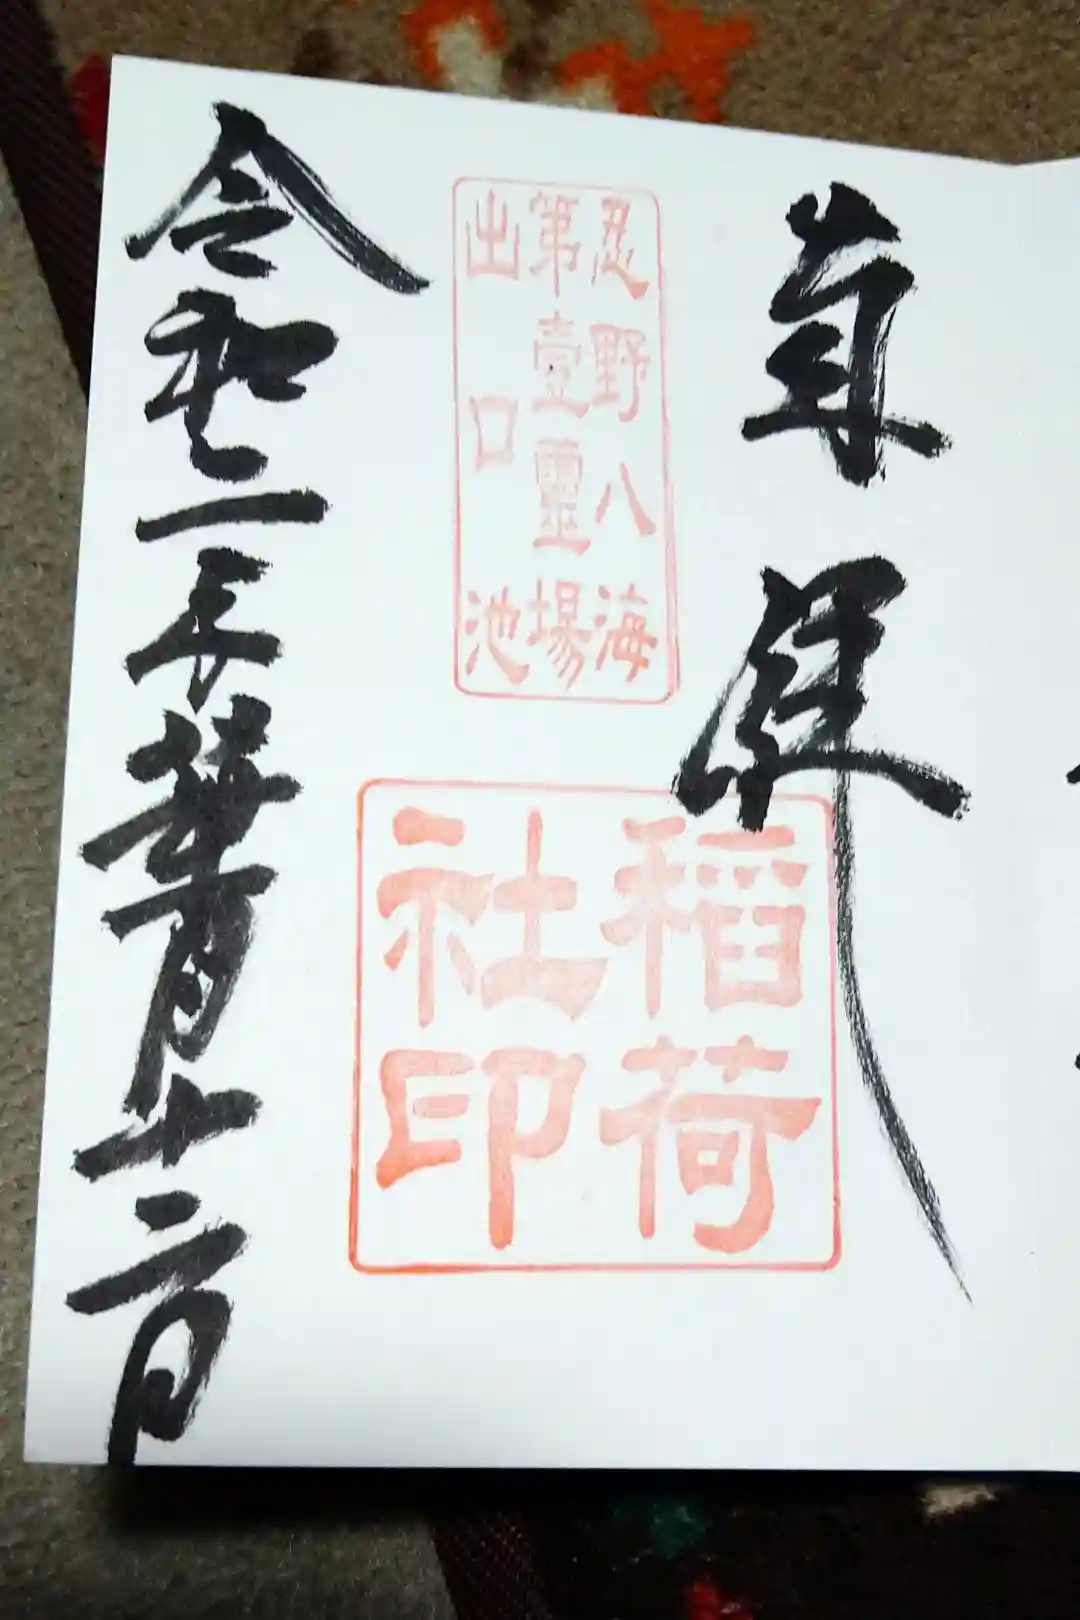 忍野八海
第壹靈場
出口池
稲荷
社印
令和二年月十二日